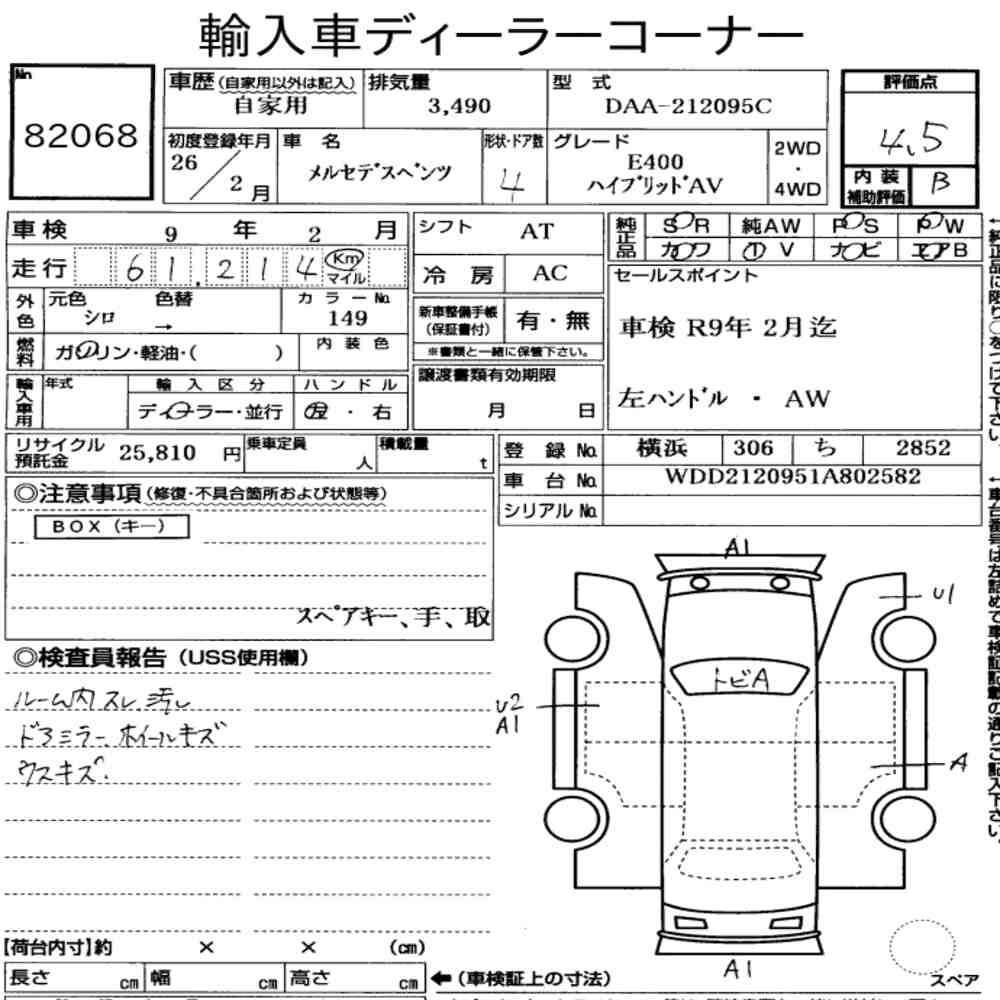 輸入車ディーラーコーナー
No.
82068
車歴(自家用以外は記入) 排気量 型 式 評価点
自家用 3,490 DAA-212095C 4.5
初度登録年月 車 名 形状・ドア数 グレード 2WD
26/2月 メルセデスベンツ 4 E400 ・
ハイブリッドAV 4WD
内装補助評価 B
車検 9 年 2 月 シフト AT 純正品 SR 純AW PS PW
走行 61,214 Km マイル 冷房 AC カワ ① V ナビ エアB
外色 元色 色替 カラーNo. セールスポイント
シロ → 149 新車整備手帳(保証書付) 有・無 車検 R9年 2月迄
燃料 ガソリン・軽油・( ) 内装色 ※書類と一緒に保管下さい。
輸入車用 年式 輸入区分 ハンドル 譲渡書類有効期限
ディーラー・並行 左・右 月 日 左ハンドル ・ AW
リサイクル預託金 25,810 円 乗車定員 人 積載量 t 登録No. 横浜 306 ち 2852
車台No. WDD2120951A802582
シリアルNo.
◎注意事項(修復・不具合箇所および状態等)
BOX(キー)
スペアキー、手、取
◎検査員報告(USS使用欄)
ルーム内スレ 汚レ
ドアミラー、ホイールキズ
ウスキズ.
A1
U1
トビA
U2
A1
A
A1
【荷台内寸】約 × × (cm)
長さ cm 幅 cm 高さ cm ←(車検証上の寸法)
スペア
←純正品に限り○をつけて下さい。
←車台番号は左詰めで車検証記載の通りご記入下さい。